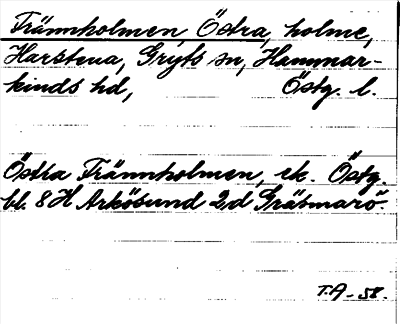 Trännholmen, Östra, holme,
Harstena, Gryts sn, Hammar-
kinds hd, Östg. l.
Östra Trännholmen, ek. Östg.
bl. 8 H Arkösund 2d Gräsmarö.
T.A-58.